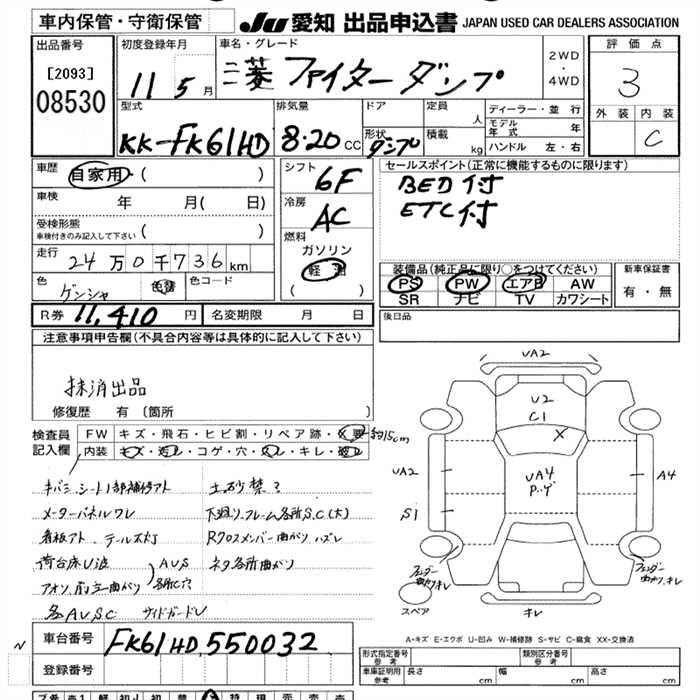 車内保管・守衛保管
JU 愛知 出品申込書 JAPAN USED CAR DEALERS ASSOCIATION
出品番号
[2093]
08530
初度登録年月
11 5 月
車名・グレード
三菱 ファイターダンプ
2WD
・
4WD
評価点
3
外装 内装
C
型式
KK-FK61HD
排気量
8.20 CC
ドア
形状
ダンプ
定員
人
積載
kg
ディーラー・並行
モデル年式 年
ハンドル 左・右
車歴
自家用・( )
車検
年 月( 日)
受検形態
車検付きのみ記入して下さい ( )
走行
24万0千736km
色
ゲンシャ
色替
色コード
シフト
6F
冷房
AC
燃料
ガソリン
軽油
( )
セールスポイント(正常に機能するものに限ります)
BED付
ETC付
装備品(純正品に限り○をつけてください)
PS PW エアB AW
SR ナビ TV カワシート
新車保証書
有・無
R券 11,410 円
名変期限 月 日
後日品
注意事項申告欄(不具合内容等は具体的に記入して下さい)
抹消出品
修復歴 有(箇所 )
検査員
記入欄
FW キズ・飛石・ヒビ割・リペア跡・X要 約15cm
内装 キズ・汚レ・コゲ・穴・スレ・キレ・破レ
キバミ シート1部補修アト 土砂禁?
メーターパネルワレ 下廻り、フレーム各所S,C(大)
看板アト、テールズ灯 Rクロスメンバー曲がりハズレ
荷台床U波 AUS 各所C穴 ネタ各所曲がり
アオリ、前立曲がり
各AUSC サイドガードU
VA2
U2
C1
X
VA2
VA4
P.ゲ
A4
S1
フェンダー曲がりキレ
フェンダー曲がり,キレ
スペア
キレ
A-キズ E-エクボ U-凹み W-補修跡 S-サビ C-腐食 XX-交換済
N
車台番号 FK61HD,550032
登録番号
形式指定番号
参考
類別区分番号
参考
車庫証明用
参考
長さ cm
幅 cm
高さ cm